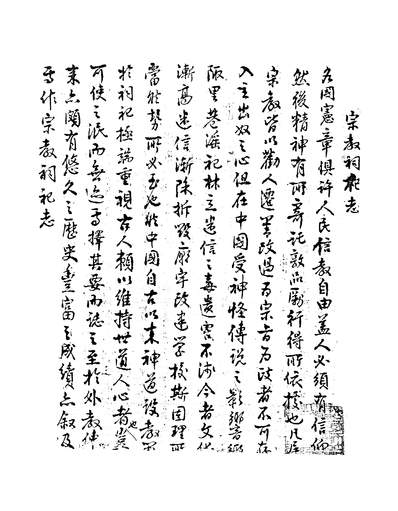 宗教祠祀志
各國憲章俱許人民信教自由蓋人必須有信仰
然後精神有所寄託敦品勵行得所依據也凡屬
宗教皆以勸人遷善改過为宗旨为政者不可存
入主出奴之心但在中國受神怪傳說之影響
陬里巷滛祀林立迷信之毒遺害不淺今者文化
漸高迷信漸除拆毀廟宇改建學校斯固理所
當然勢所必至也然中國自古以來神道設教
於祠祀極端重視古人賴以維持世道人心者也豈
可使之泯而無迹焉擇其要而誌之至於外教傳
來亦頗有悠久之歷史豐富之成績亦叙及
焉作宗教祠祀志